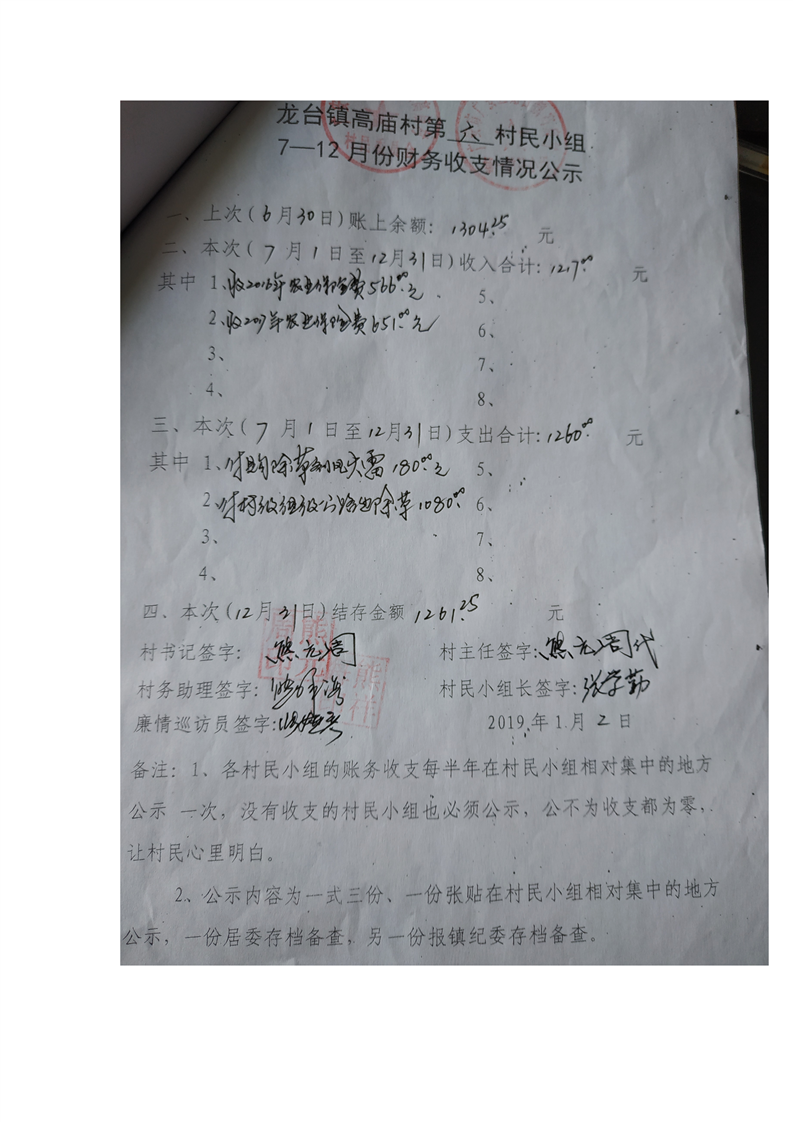 龙台镇高庙村第六村民小组
7—12月份财务收支情况公示
一、上次(6月30日)账上余额：1304.25元
二、本次(7月1日至12月31日)收入合计：1217.00元
其中 1、收2016年农业保险费566.00元 5、
2、收2017年农业保险费651.00元 6、
3、 7、
4、 8、
三、本次(7月1日至12月31日)支出合计：1260.00元
其中 1、付购除草剂 180.00元 5、
2、付村级组级公路边除草1080.00 6、
3、 7、
4、 8、
四、本次(12月31日)结存金额1261.25元
村书记签字：熊元周 村主任签字：熊元周代
村务助理签字： 村民小组长签字：张学勤
廉情巡访员签字：
2019年1月2日
备注：1、各村民小组的账务收支每半年在村民小组相对集中的地方
公示 一次，没有收支的村民小组也必须公示，公不为收支都为零，
让村民心里明白。
2、公示内容为一式三份、一份张贴在村民小组相对集中的地方
公示，一份居委存档备查，另一份报镇纪委存档备查。